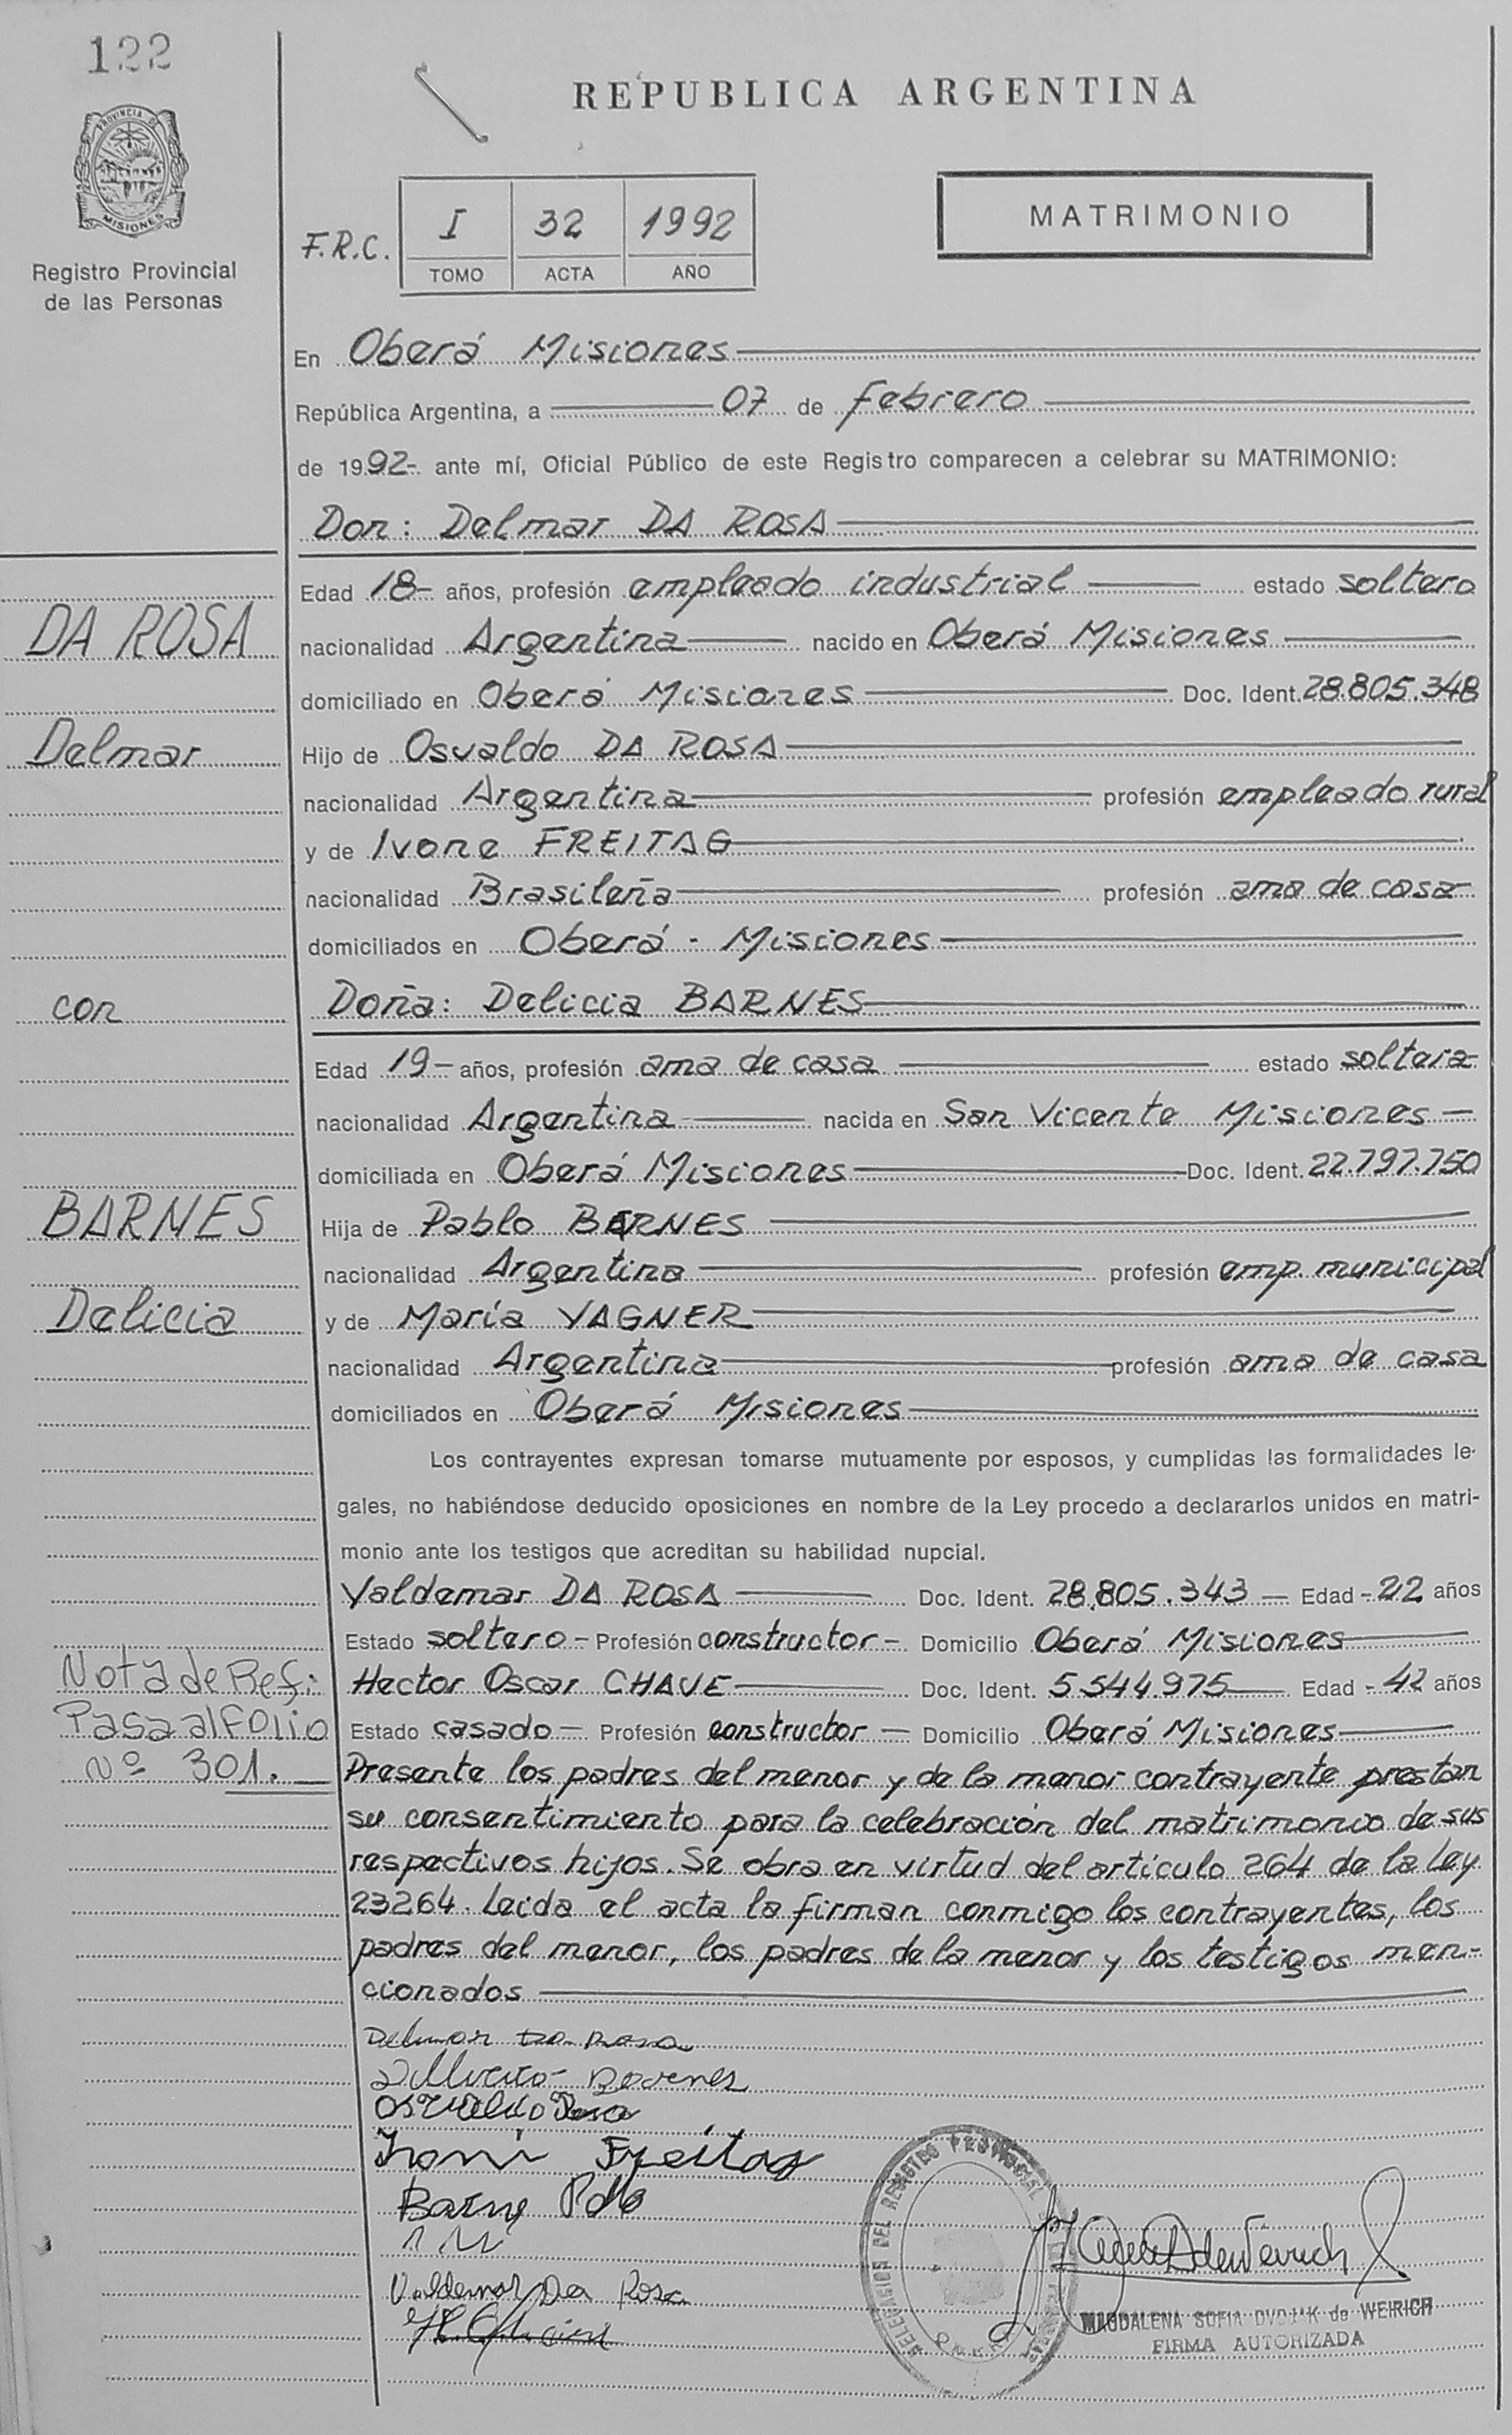 122
REPUBLICA ARGENTINA
PROVINCIA DE
MISIONES
Registro Provincial
de las Personas
F.R.C.
I 32 1992
TOMO ACTA AÑO
MATRIMONIO
En Oberá Misiones
República Argentina, a 07 de Febrero
de 1992- ante mí, Oficial Público de este Registro comparecen a celebrar su MATRIMONIO:
Don: Delmar DA ROSA
Edad 18- años, profesión empleado industrial estado soltero
DA ROSA
nacionalidad Argentina nacido en Oberá Misiones
domiciliado en Oberá Misiones Doc. Ident. 28.805.348
Delmar
Hijo de Osvaldo DA ROSA
nacionalidad Argentina profesión empleado rural
y de Ivone FREITAG
nacionalidad Brasileña profesión ama de casa
domiciliados en Oberá - Misiones
con
Doña: Delicia BARNES
Edad 19- años, profesión ama de casa estado soltera
nacionalidad Argentina nacida en San Vicente Misiones
domiciliada en Oberá Misiones Doc. Ident. 22.797.750
BARNES
Hija de Pablo BARNES
nacionalidad Argentina profesión emp. municipal
Delicia
y de María VAGNER
nacionalidad Argentina profesión ama de casa
domiciliados en Oberá Misiones
Los contrayentes expresan tomarse mutuamente por esposos, y cumplidas las formalidades le-
gales, no habiéndose deducido oposiciones en nombre de la Ley procedo a declararlos unidos en matri-
monio ante los testigos que acreditan su habilidad nupcial.
Valdemar DA ROSA Doc. Ident. 28.805.343 Edad -22 años
Estado soltero - Profesión constructor - Domicilio Oberá Misiones
Hector Oscar CHAVE Doc. Ident. 5.544.975 Edad - 42 años
Estado casado - Profesión constructor - Domicilio Oberá Misiones
Nota de Ref:
Pasa al Folio
Nº 301.
Presente los padres del menor y de la menor contrayente prestan
su consentimiento para la celebración del matrimonio de sus
respectivos hijos. Se obra en virtud del artículo 264 de la Ley
23264. Leida el acta la firman conmigo los contrayentes, los
padres del menor, los padres de la menor y los testigos men-
cionados
Delmar Da Rosa
Barnes
Osvaldo Rosa
Freitag
Barne Pablo
Valdemar Da Rosa
DELEGACION DEL REGISTRO PROVINCIAL
MAGDALENA SOFIA de WEIRICH
FIRMA AUTORIZADA